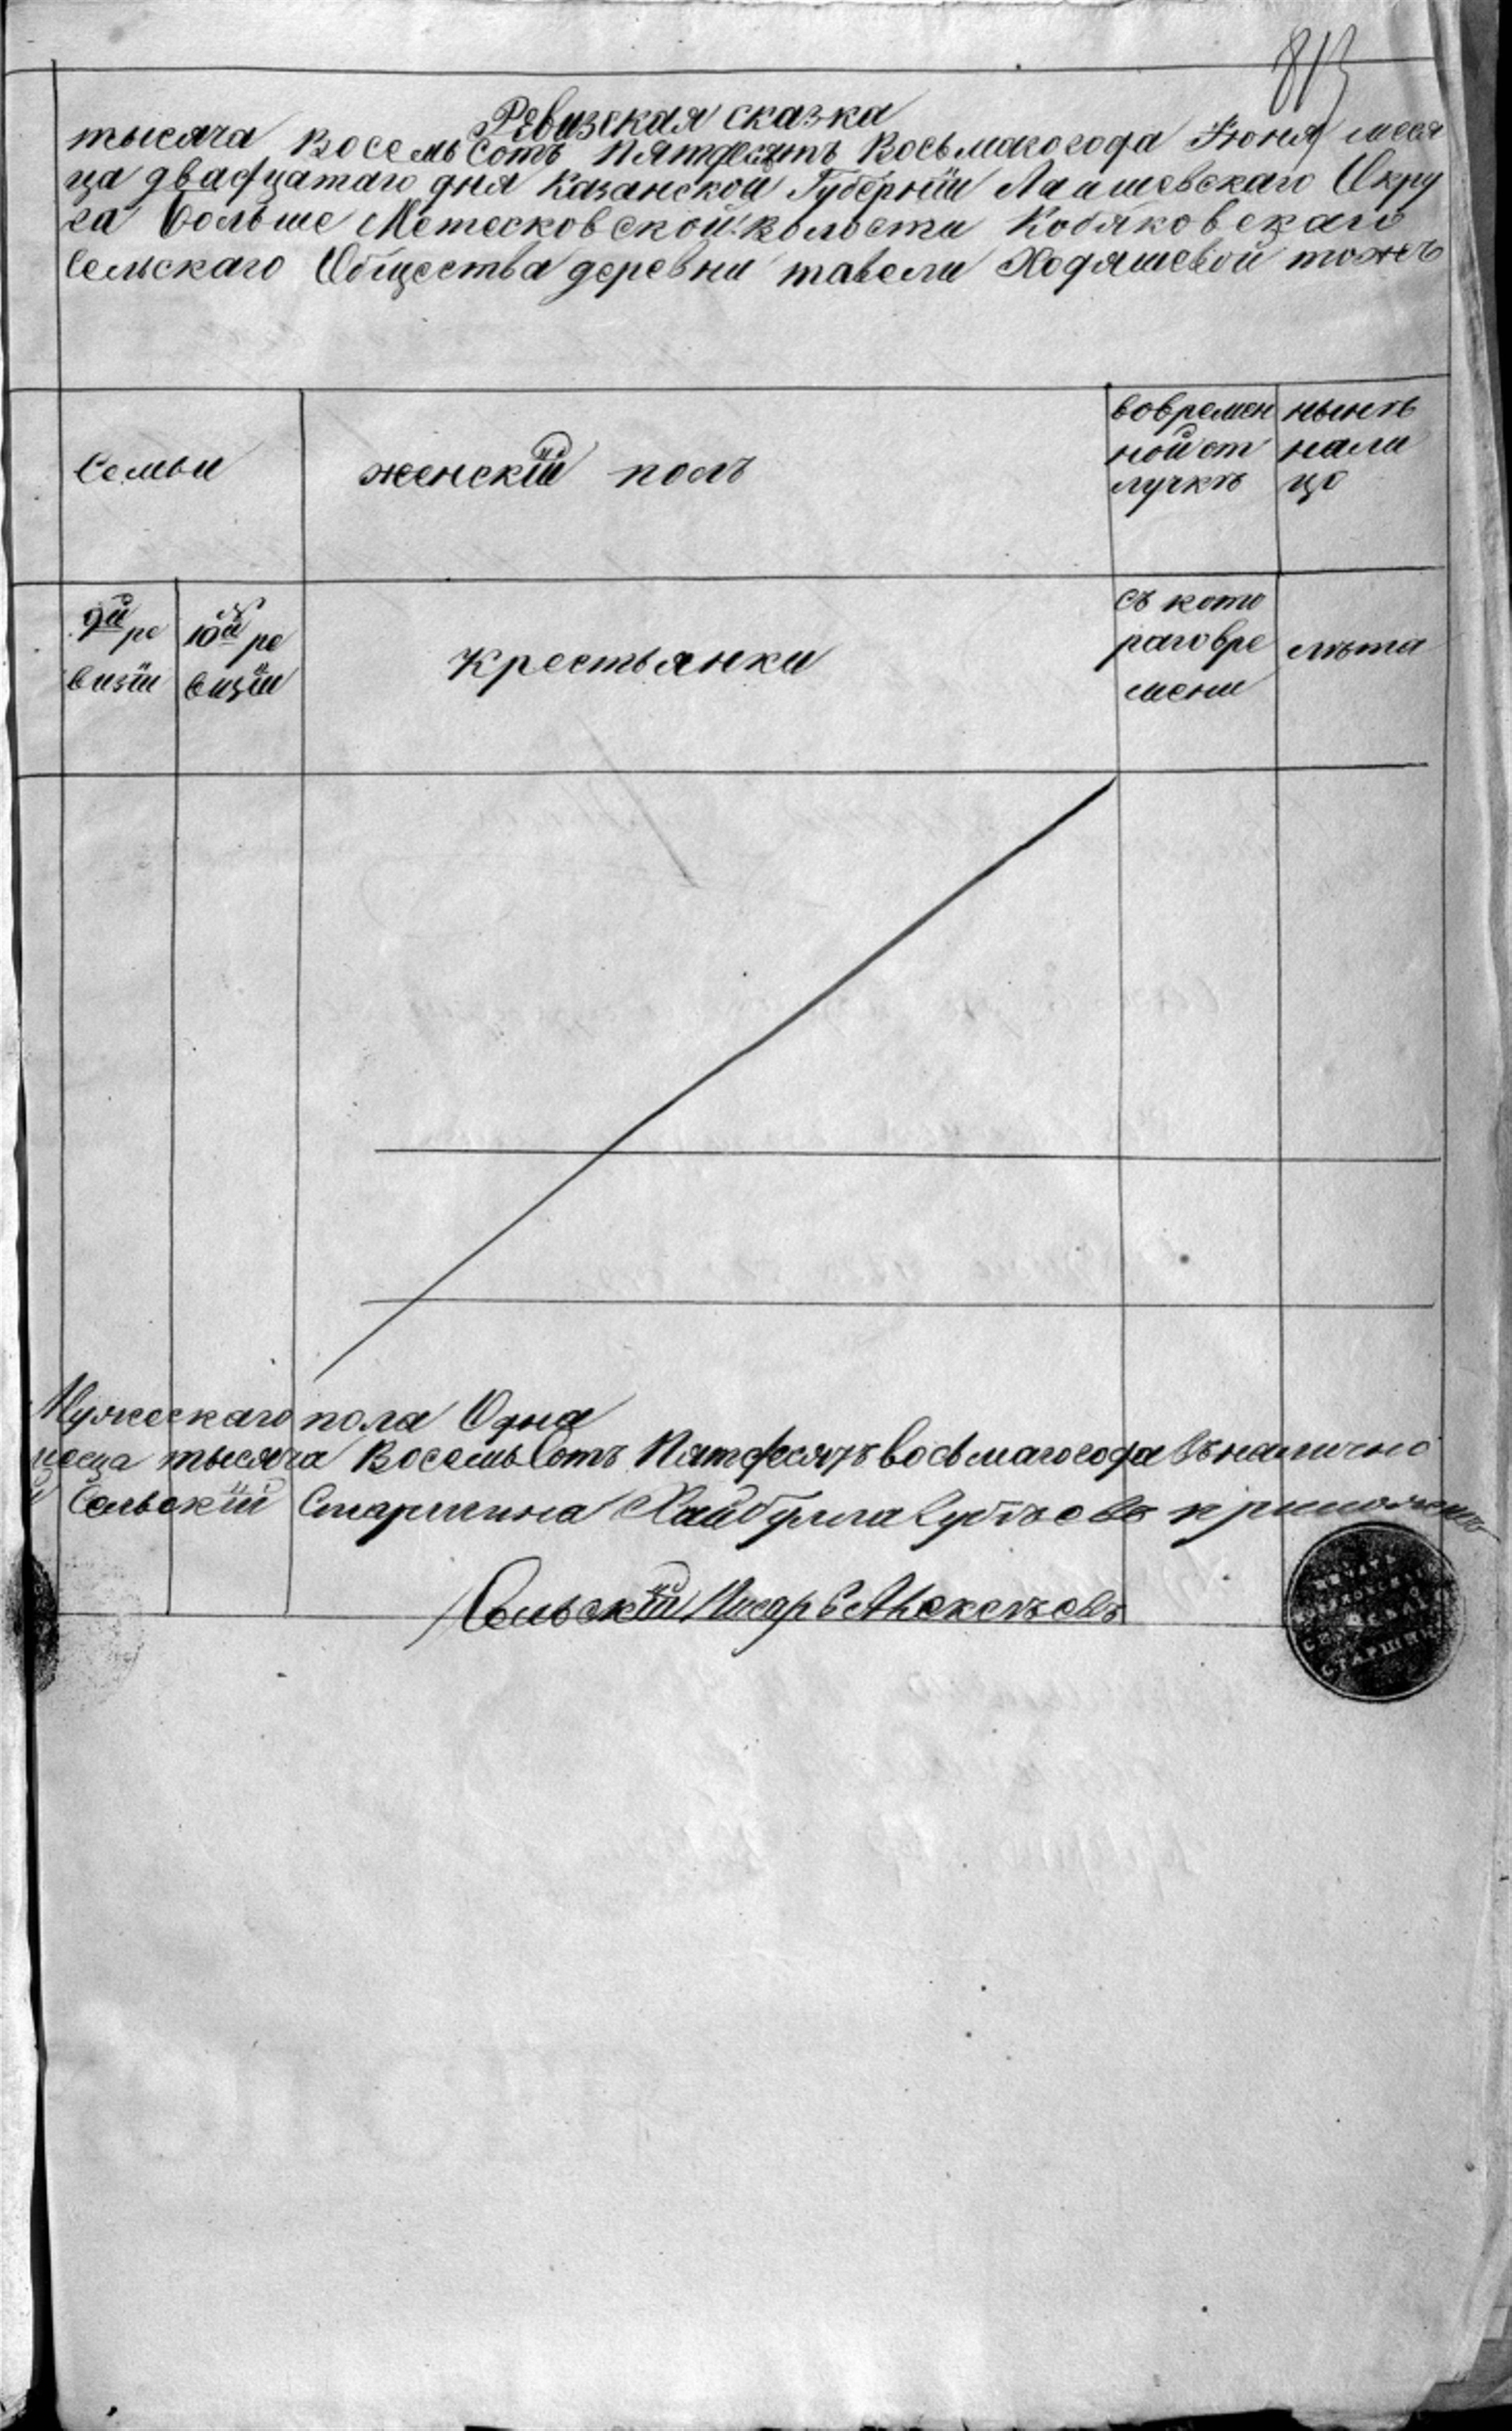 813
Ревизская сказка
тысяча восемь сотъ пятдесятъ восьмагогода Июня меся
ца двадцатаго дня Казанской Губернïи Лаишевскаго Окру
га больше Метесковской волости Кобяковскаго
Сельскаго Общества деревни тавели Ходяшевой тожъ
Семьи
женскïй полъ
вовремен
ной от
лучкѣ
нынѣ
нали
цо
9й ре
визïи
10й ре
визïи
Крестьянки
съ кото
раговре
мени
лѣта
Мужескаго пола Одна
тысяча восемь Сотъ Пятдесятъ восьмагогода
Сельскïй Старшина Хайбулла приложилъ
Сельскïй Писарь Алексѣевъ
ПЕЧАТЬ
СЕЛЬСКАГО
СТАРШИНЫ